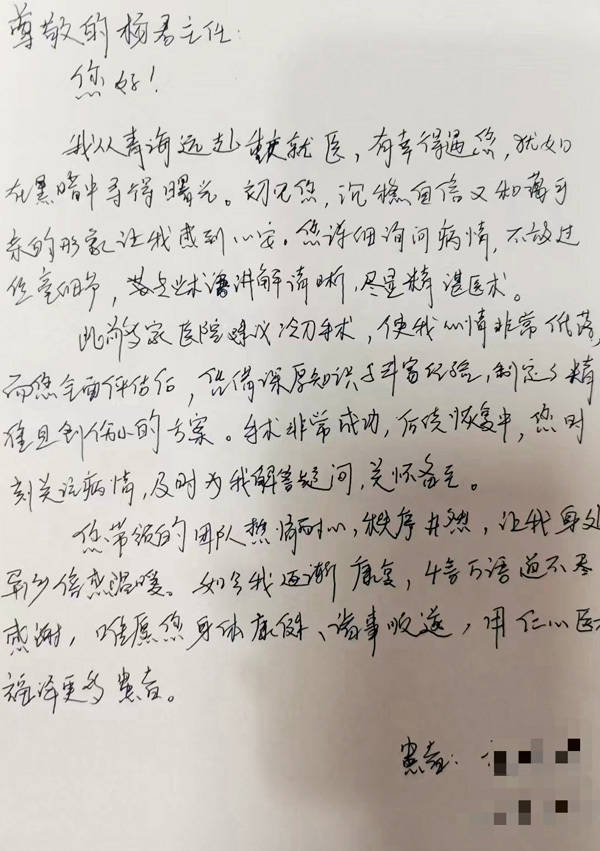 尊敬的杨君主任:
您好!
我从青海远赴重庆就医,有幸得遇您,犹如
在黑暗中寻得曙光。初见您,沉稳自信又和蔼可
亲的形象让我感到心安。您详细询问病情,不放过
任何细节,术语讲解清晰,尽显精湛医术。
此前家医院建议冷刀手术,使我心情非常低落,
而您全面评估后,凭借深厚知识与丰富经验,制定了精
准且创伤小的方案。手术非常成功,后续恢复中,您时
刻关注病情,及时为我解答疑问,关怀备至。
您带领的团队热情耐心,秩序井然,让我身处
异乡倍感温暖。如今我逐渐康复,千言万语道不尽
感谢,唯愿您身体康健、诸事顺遂,用仁心医
福泽更多患者。
患者: